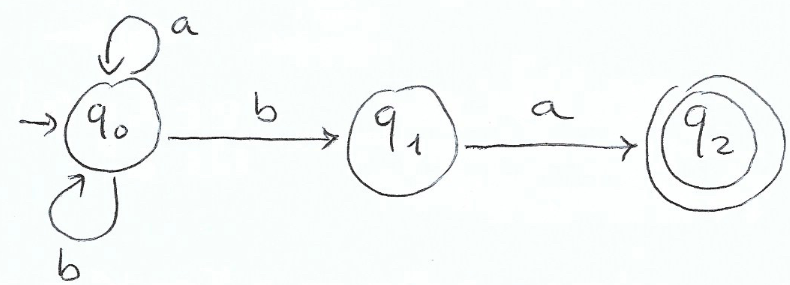 a
q₀ b q₁ a q₂
b